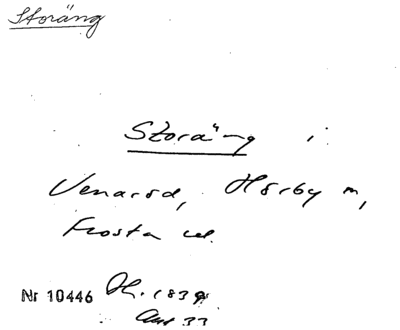 Storäng
Storäng i
Venarød, Hørby m,
Frosta
Nr 10446 Øh. 1839
Ant 33